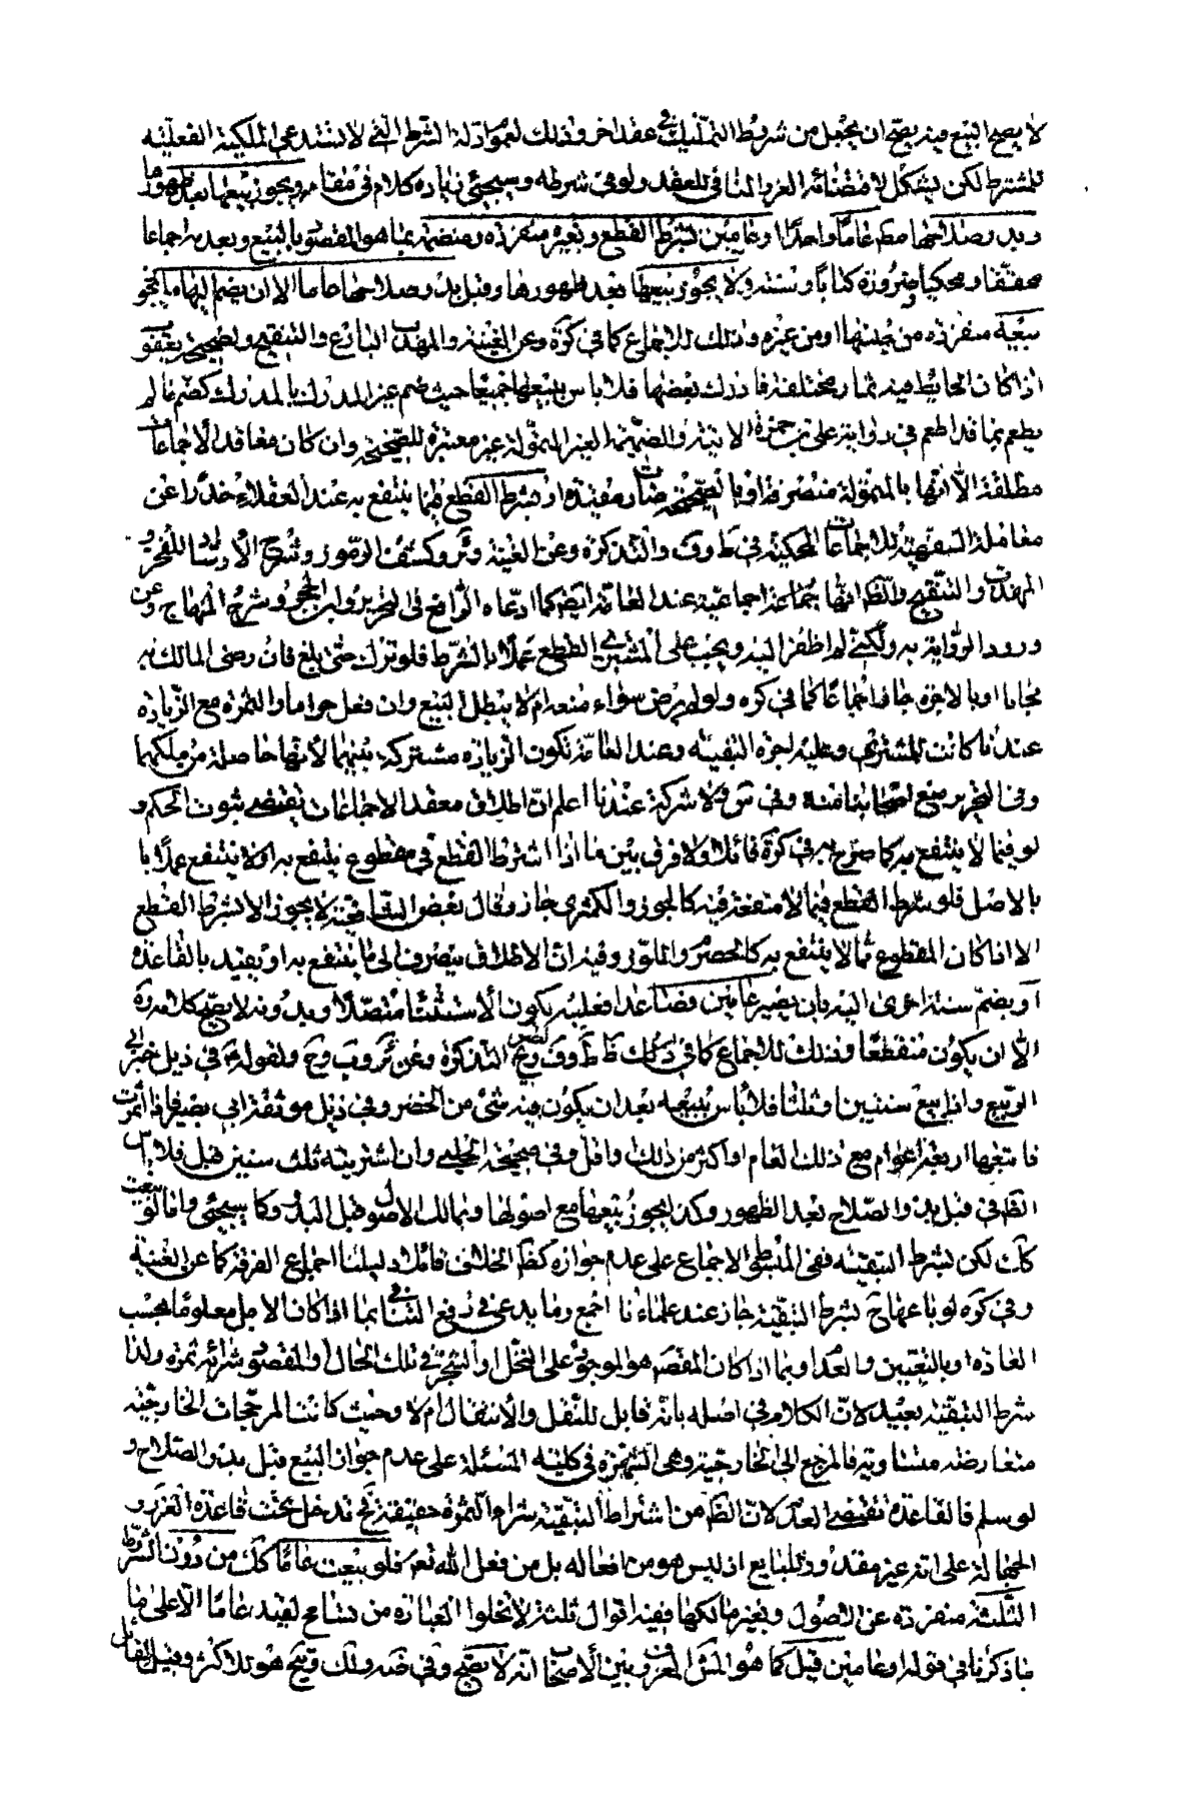 لا يصح البيع فيه يصح ان يجعل من شروط التمليك في عقد اخر وذلك لعموا دلة الشرط التى لا تستدعى الملكية الفعلية
للمشترط لكن يشكل لاقتضائه الغرر المنافى للعقد ولو فى شرطه وسيجئ زيادة كلام فى مقامه ويجوز بيعها بعد ظهورها
وبدو صلاحها مطم عاما واحدا او عامين بشرط القطع وبغيره منفردة ومنضمة بما هو المقصود بالبيع وبعدمه اجماعا
محققا ومحكيا وضرورة كتابا وسنة ولا يجوز بيعها بعد ظهورها وقبل بدو صلاحها عاما الا ان يضم اليها ما يجوز
بيعه منفردة من جنسها او من غيره وذلك للاجماع كما فى كرة وعن الغنية والمهذب البارع والتنقيح ولصحيح يعقوب
اذا كان الحايط فيه ثمار مختلفة فادرك بعضها فلا باس ببيعها جميعا حيث ضم غير المدرك بالمدرك كضم ما لم
يطعم بما قد اطعم فى رواية على بن حمزة الاتية والضميمة الغير المتمولة غير معتبرة للصحيحة وان كان معاقد الاجماعات
مطلقة الا انها بالمتمولة منصرفة او با لصحيحة مقيدة او بشرط القطع فيما ينتفع به عند العقلاء حذرا عن
معاملة السفهية للاجماعات المحكية فى ط وف والتذكرة وعن الغنية وئر وكشف الرموز وشرح الارشاد للفخر و
المهذب والتنقيح والظ انها اجماعية عند العامة ايضا كما ادعاه الرافع فى التحرير وابن الحجر وشرح المنهاج وعن
ورود الرواية به ولكنى لم اظفر اليه ويجب على المشترى القطع عملا بالشرط فلو ترك حتى بلغ فان رضى المالك به
مجانا او بالاجرة جاز اجماعا كما فى كره ولو لم يرض سواء منعه ام لا يبطل البيع وان فعل حراما والثمرة مع الزيادة
عندنا كانت للمشترى وعليه اجرة التبقية وعند العامة تكون الزيادة مشتركة بينهما لانها حاصلة من ملكهما
وفى التحرير منع اصحابنا منه وفى س ولا شركة عندنا اعلم ان اطلاق معقد الاجماعات يقتضى ثبوت الحكم و
لو فيما لا ينتفع به كما صرح به فى كرة قائلا ولا فرق بين ما اذا اشترط القطع فى مقطوع ينتفع به او لا ينتفع عملا با
بالاصل فلو شرط القطع فيما لا منفعة فيه كالجوز والكمثرى جاز وقال بعض الشافعية لا يجوز الا بشرط القطع
الا اذا كان المقطوع مما لا ينتفع به كالحصرم واللوز وفيه ان الاطلاق ينصرف الى ما ينتفع به او يقيد بالقاعدة
او بضم سنة اخرى اليه بان يصير عامين فصاعدا فعليه يكون الاستثناء متصلا وبدونه لا يصح كلامه
الا ان يكون منقطعا وذلك للاجماع كما فى ط وف التذكرة وعن ئر ولقوله ع فى ذيل خبر
الربيع واذا بيع سنتين او ثلثا فلا باس ببيعه بعد ان يكون فيه شئ من الخضر وفى ذيل موثقة ابى بصير فاذا اثمرت
فابتعها اربعة اعوام مع ذلك العام او اكثر من ذلك واقل وفى صحيحة الحلبى وان اشتريته ثلث سنين قبل فلا باس
الظ فى قبل بدو الصلاح بعد الظهور وكذا يجوز بيعها مع اصولها ولمالك الاصول قبل البدو كما سيجئ واما لو بيعت
كك لكن بشرط التبقية ففى المبسوط الاجماع على عدم جوازه كظ الخلاف قائلا دليلنا اجماع الفرقة كما عن الغنية
وفى كره لو باعها بشرط التبقية جاز عند علمائنا اجمع وما يدعى فى رفع التنافى بما اذا كان الاجل معلوما بحسب
العادة او بالتعيين والعدم وبما اذا كان المقصد هو الموجود على النخل او الشجر فى تلك الحال او المقصود شرائه ثمرة ولذا
شرط التبقية بعيد لان الكلام فى اصله بانه قابل للنقل والانتقال ام لا وحيث كانت المرجحات الخارجية
متعارضة متساوية فالمرجع الى الخارجية وهى الشهرة فى كلية المسئلة على عدم جواز البيع قبل بدو الصلاح و
لو سلم فالقاعدة تقتضى العدم لان الظ من اشتراط التبقية شراء الثمرة حقيقة فح تدخل تحت قاعدة الغرر و
الجهالة على انه غير مقدور للبايع اذ ليس هو من افعاله بل من فعل الله تعم فلو بيعت عاما كك من دون الشروط
الثلثة منفردة عن الاصول وبغير مالكها ففيه اقوال ثلثة لا تخلوا العبارة من تسامح لقيد عاما الا على ما
ما ذكرنا فى قوله او عامين قيل كما هو المش المعروف بين الاصحاب انه لا يصح وفى ضه ولك وتيج هو للاكثر وقيل القائل